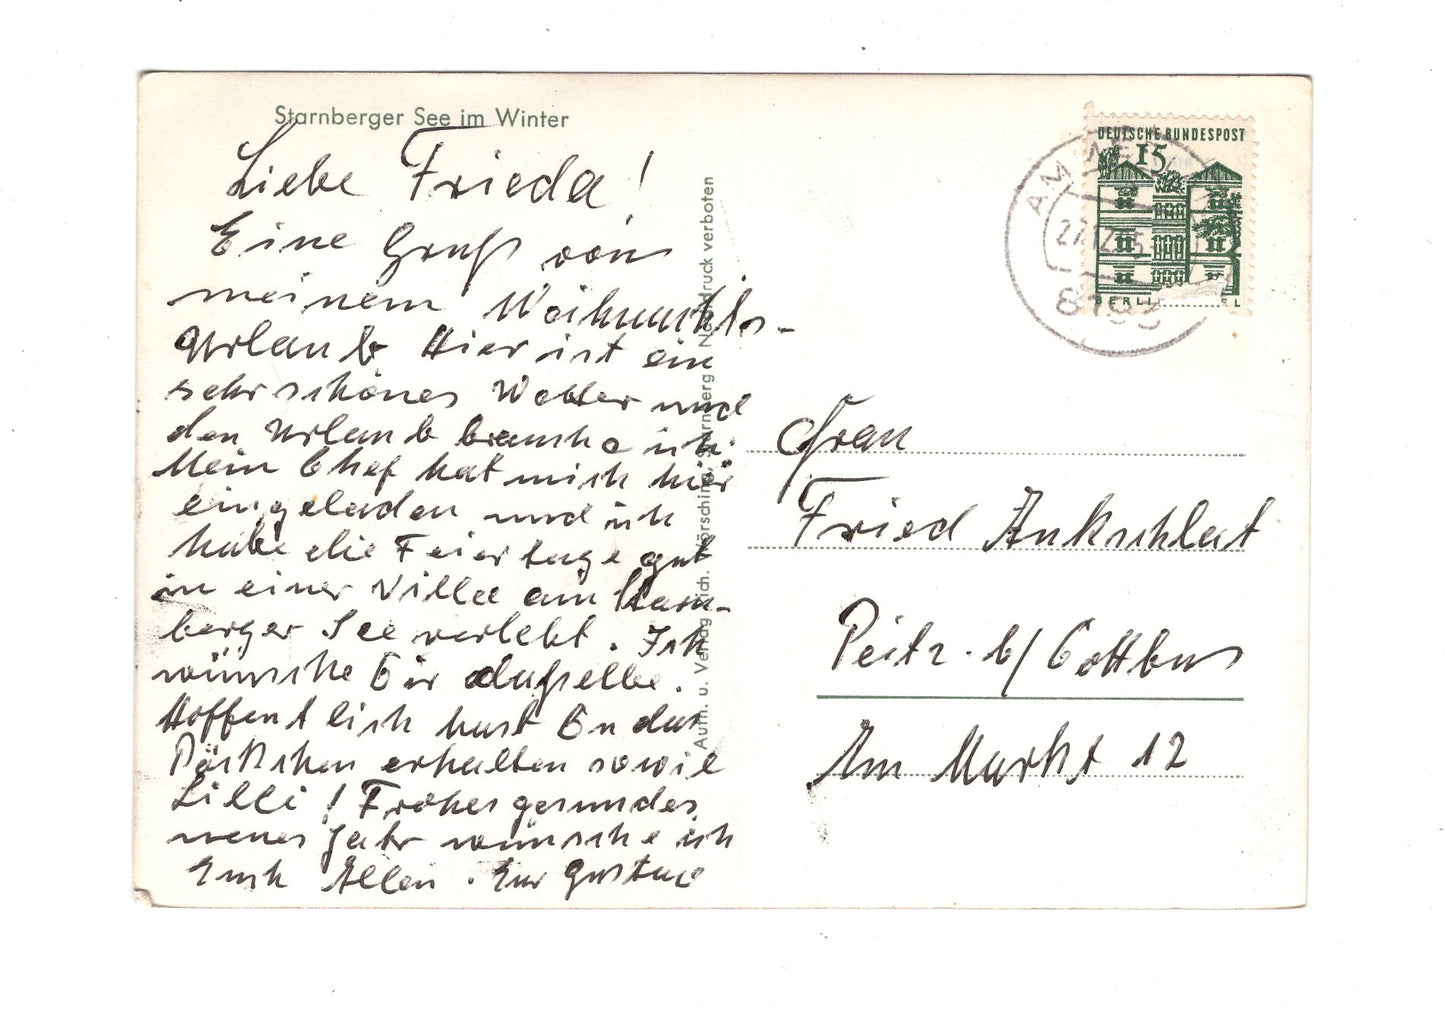 Starnberger See im Winter
Liebe Frieda!
Eine Gruß von
meinem Weihnachts-
Urlaub Hier ist ein
sehr schönes Wetter und
den Urlaub brauche ich.
Mein Chef hat mich hier
eingeladen und ich
habe die Feiertage gut
in einer Villa am Starn-
berger See verlebt. Ich
wünsche Dir dasselbe.
Hoffentlich hast Du das
Päckchen erhalten sowie
Lilli! Frohes gesundes
neues Jahr wünsche ich
Euch Allen. Eur Gustav
Auth. u. Verlag Rich. Wörsching, Starnberg Nachdruck verboten
DEUTSCHE BUNDESPOST
15
BERLIN
AM
27.12.
Frau
Fried Ankschlat
Peitz. b/ Cottbus
Am Markt 12